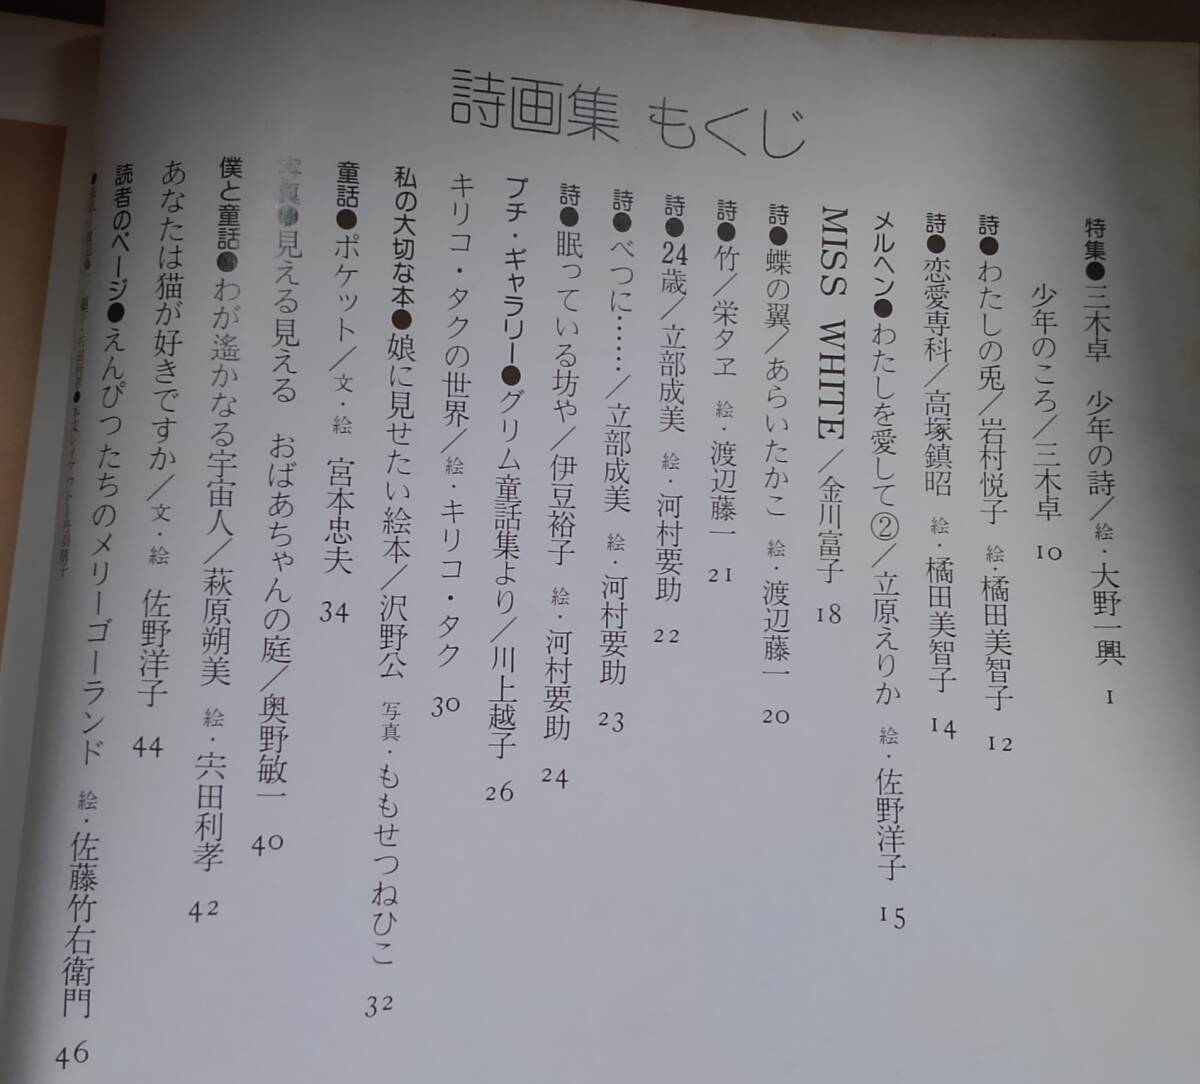 詩画集 もくじ
特集●三木卓　少年の詩／絵・大野一興 1
少年のころ／三木卓 10
詩●わたしの兎／岩村悦子 絵・橘田美智子 12
詩●恋愛専科／高塚鎮昭 絵・橘田美智子 14
メルヘン●わたしを愛して②／立原えりか 絵・佐野洋子 15
MISS WHITE／金川富子 18
詩●蝶の翼／あらいたかこ 絵・渡辺藤一 20
詩●竹／栄タヱ 絵・渡辺藤一 21
詩●24歳／立部成美 絵・河村要助 22
詩●べつに……／立部成美 絵・河村要助 23
詩●眠っている坊や／伊豆裕子 絵・河村要助 24
プチ・ギャラリー●グリム童話集より／川上越子 26
キリコ・タクの世界／絵・キリコ・タク 30
私の大切な本●娘に見せたい絵本／沢野公 写真・ももせつねひこ 32
童話●ポケット／文・絵 宮本忠夫 34
見える見える　おばあちゃんの庭／奥野敏一 40
僕と童話●わが遙かなる宇宙人／萩原朔美 絵・宍田利孝 42
あなたは猫が好きですか／文・絵 佐野洋子 44
読者のページ●えんぴつたちのメリーゴーランド 絵・佐藤竹右衛門 46